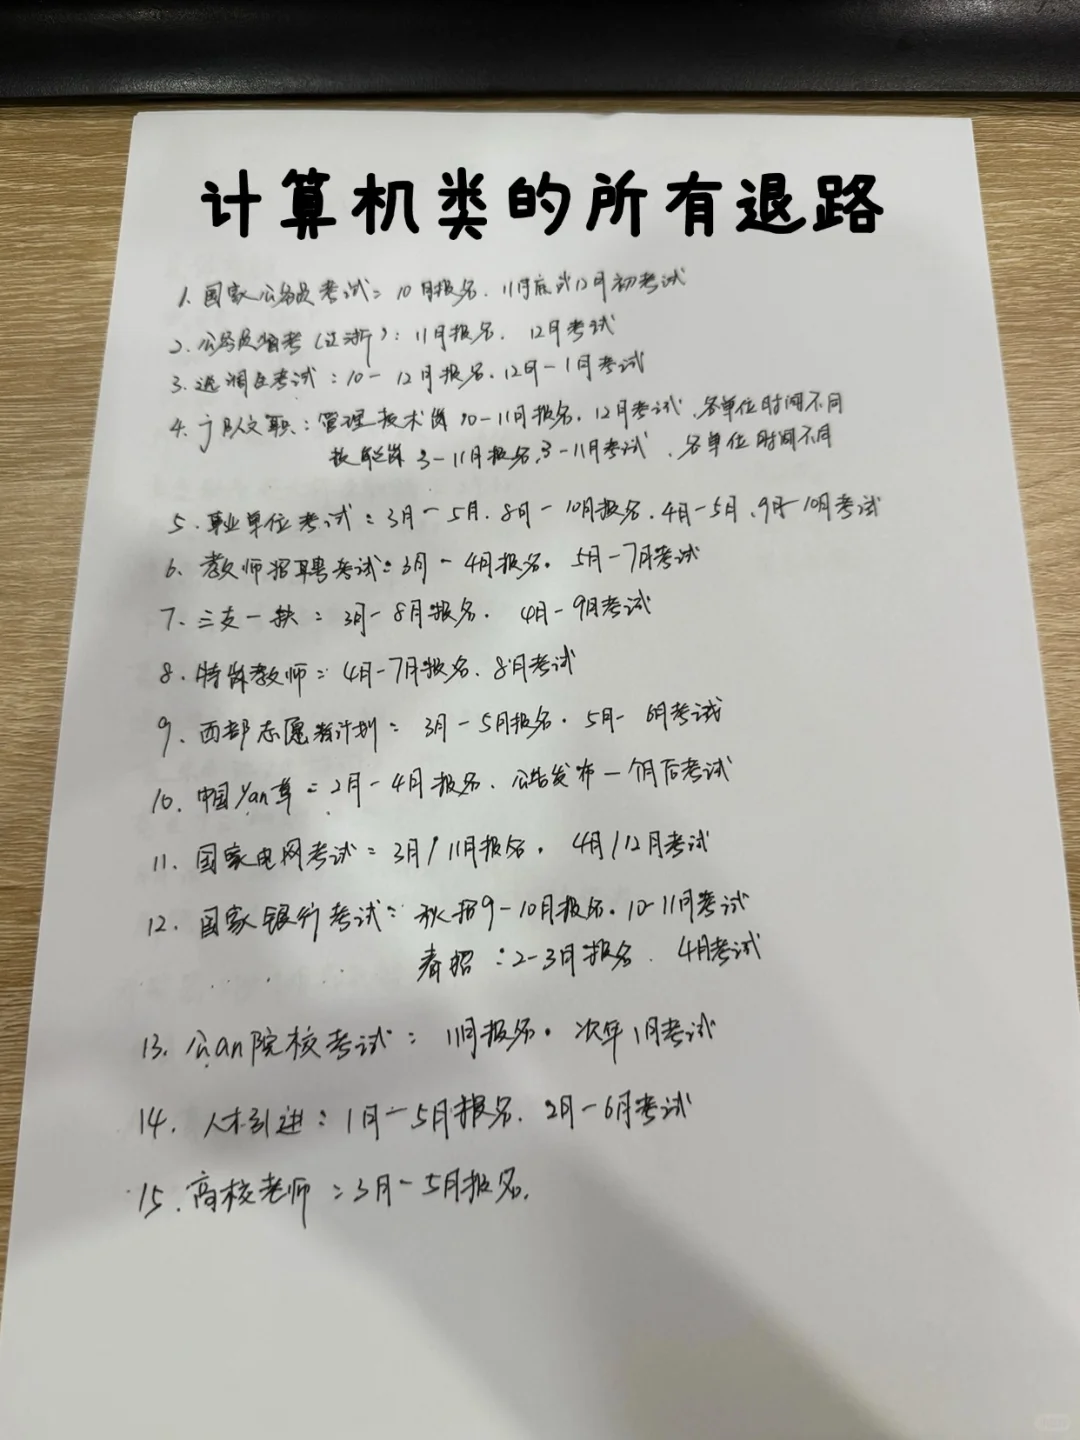 计算机类的所有退路
1. 国家公务员考试：10月报名、11月底或12月初考试
2. 公务员省考（江浙）：11月报名、12月考试
3. 选调生考试：10-12月报名、12月-1月考试
4. 部队文职：管理技术岗10-11月报名、12月考试、各单位时间不同
技能岗3-11月报名、3-11月考试、各单位时间不同
5. 事业单位考试：3月-5月、8月-10月报名、4月-5月、9月-10月考试
6. 教师招聘考试：3月-4月报名. 5月-7月考试
7. 三支一扶：3月-8月报名. 4月-9月考试
8. 特岗教师：4月-7月报名、8月考试
9. 西部志愿者计划：3月-5月报名. 5月-6月考试
10. 中国yan草：2月-4月报名、公告发布一个月后考试
11. 国家电网考试：3月/11月报名. 4月/12月考试
12. 国家银行考试：秋招9-10月报名. 10-11月考试
春招：2-3月报名. 4月考试
13. 公an院校考试：11月报名. 次年1月考试
14. 人才引进：1月-5月报名. 2月-6月考试
15. 高校老师：3月-5月报名.